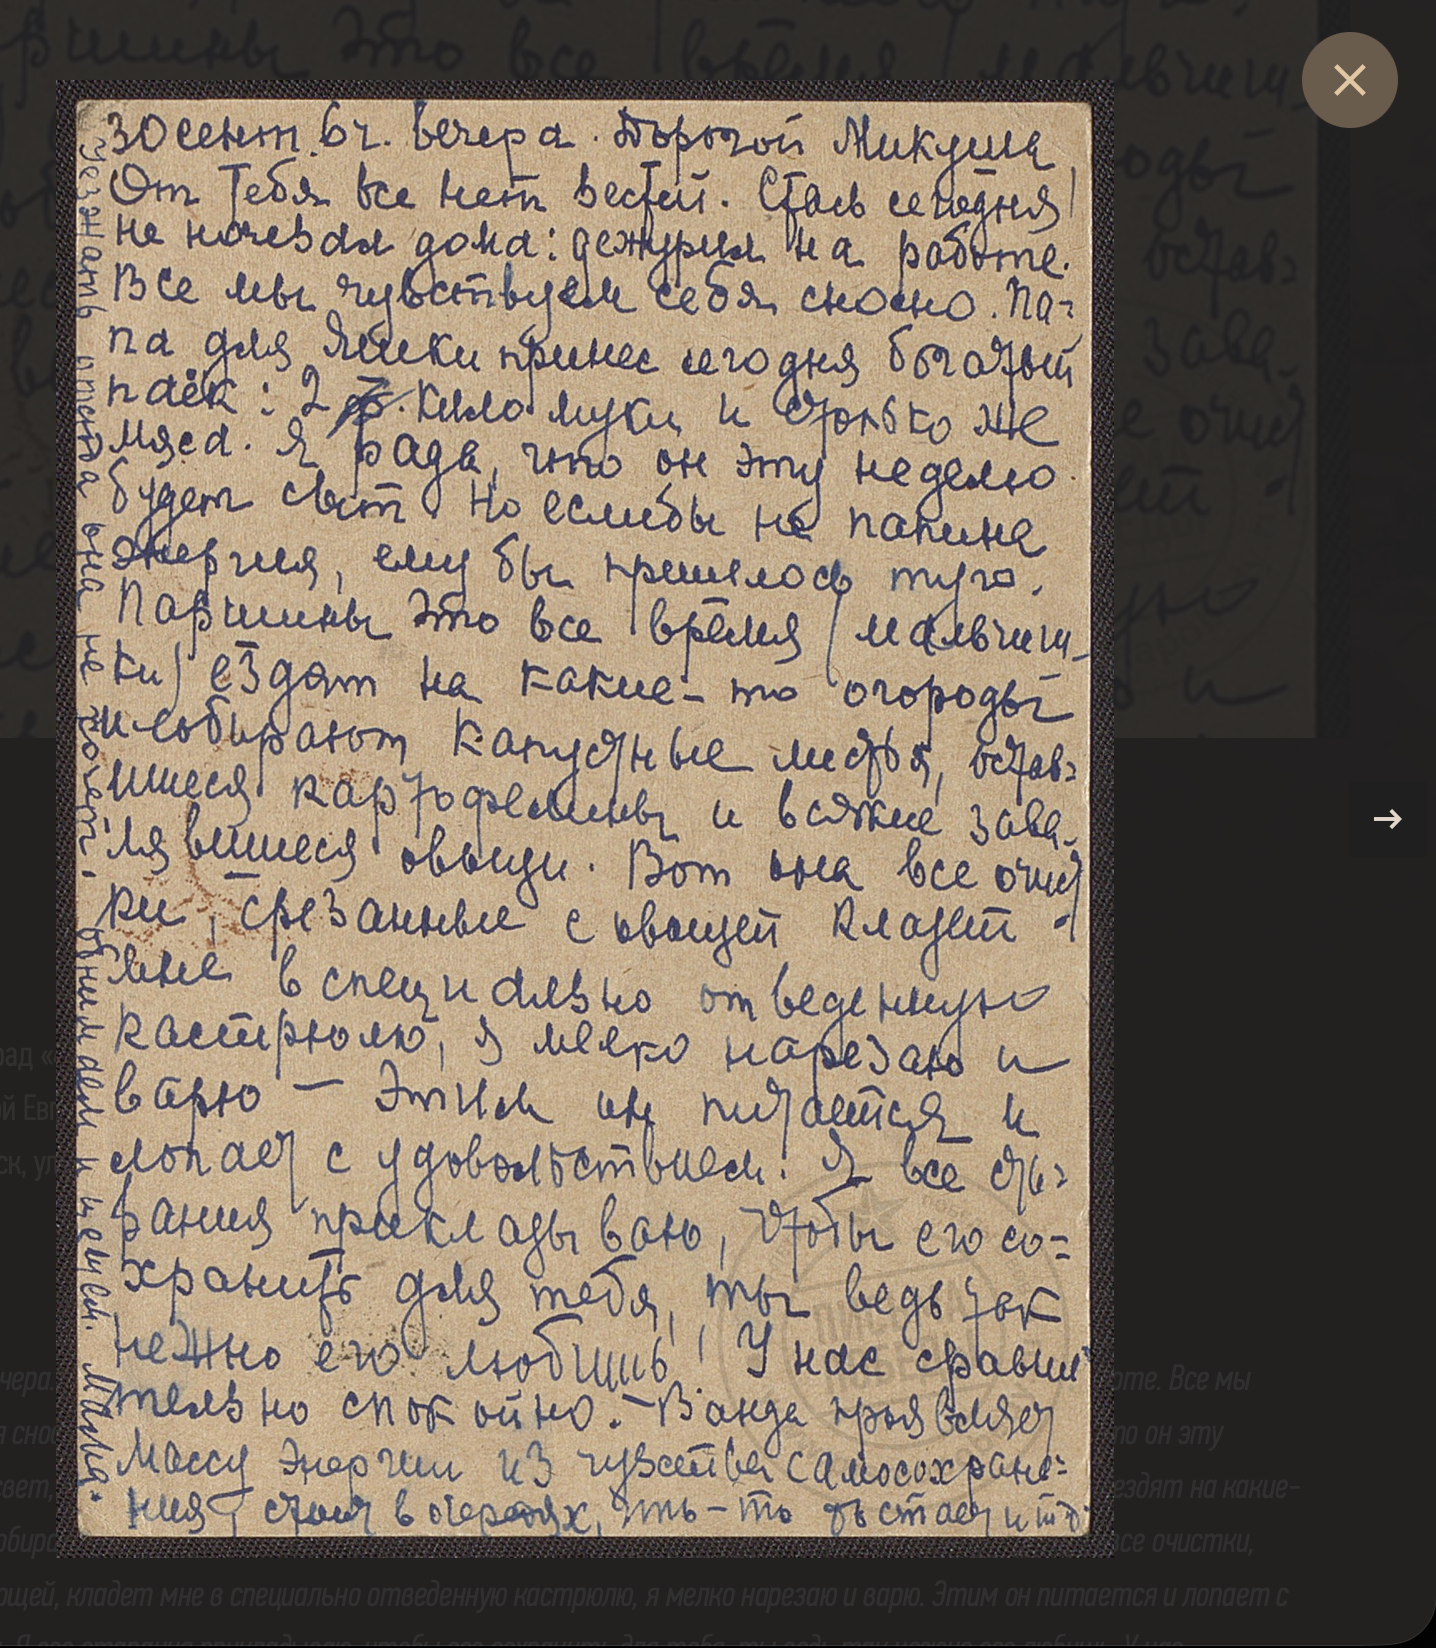 30 сент. 6 ч. вечера. Дорогой Микуша!
От Тебя все нет вестей. Стась сегодня
не ночевал дома: дежурил на работе.
Все мы чувствуем себя сносно. Па=
па для Яшки принес сегодня богатый
паёк: 2 кило муки и столько же
мяса. Я рада, что он эту неделю
будет сыт. Но еслибы не папина
энергия, ему бы пришлось туго.
Паршины это все время (мальчиш-
ки) ездят на какие-то огороды
и собирают капустные листья, остав=
шиеся картофелины и всякие зава-
лявшиеся овощи. Вот она все очист
ки, срезанные с овощей кладет
мне в специально отведенную
кастрюлю, я мелко нарезаю и
варю — Этим он питается и
лопает с удовольствием. Я все ста=
рания прикладываю, чтобы его со=
хранить для тебя, ты ведь так
нежно его любишь! У нас сравни
тельно спокойно. — Ванда проявляет
массу энергии из чувства самосохране=
ния, стоит в очередях, что-то достает и т.д.
Уезжать отсюда она не хочет. Обнимаем и целуем. Мама.
рад «
ой Ев
ск, ул
чера.
я сно
свет,
обира
рте. Все мы
то он эту
ездят на какие-
все очистки,
ощей, кладет мне в специально отведенную кастрюлю, я мелко нарезаю и варю. Этим он питается и лопает с